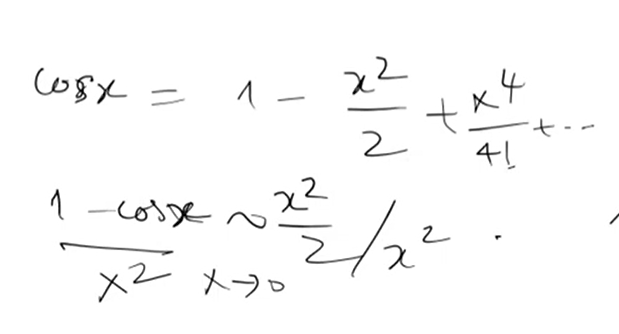 cos x = 1 - x²/2 + x⁴/4! + ...
(1 - cos x)/x² ~ x²/2 / x² .
x→0